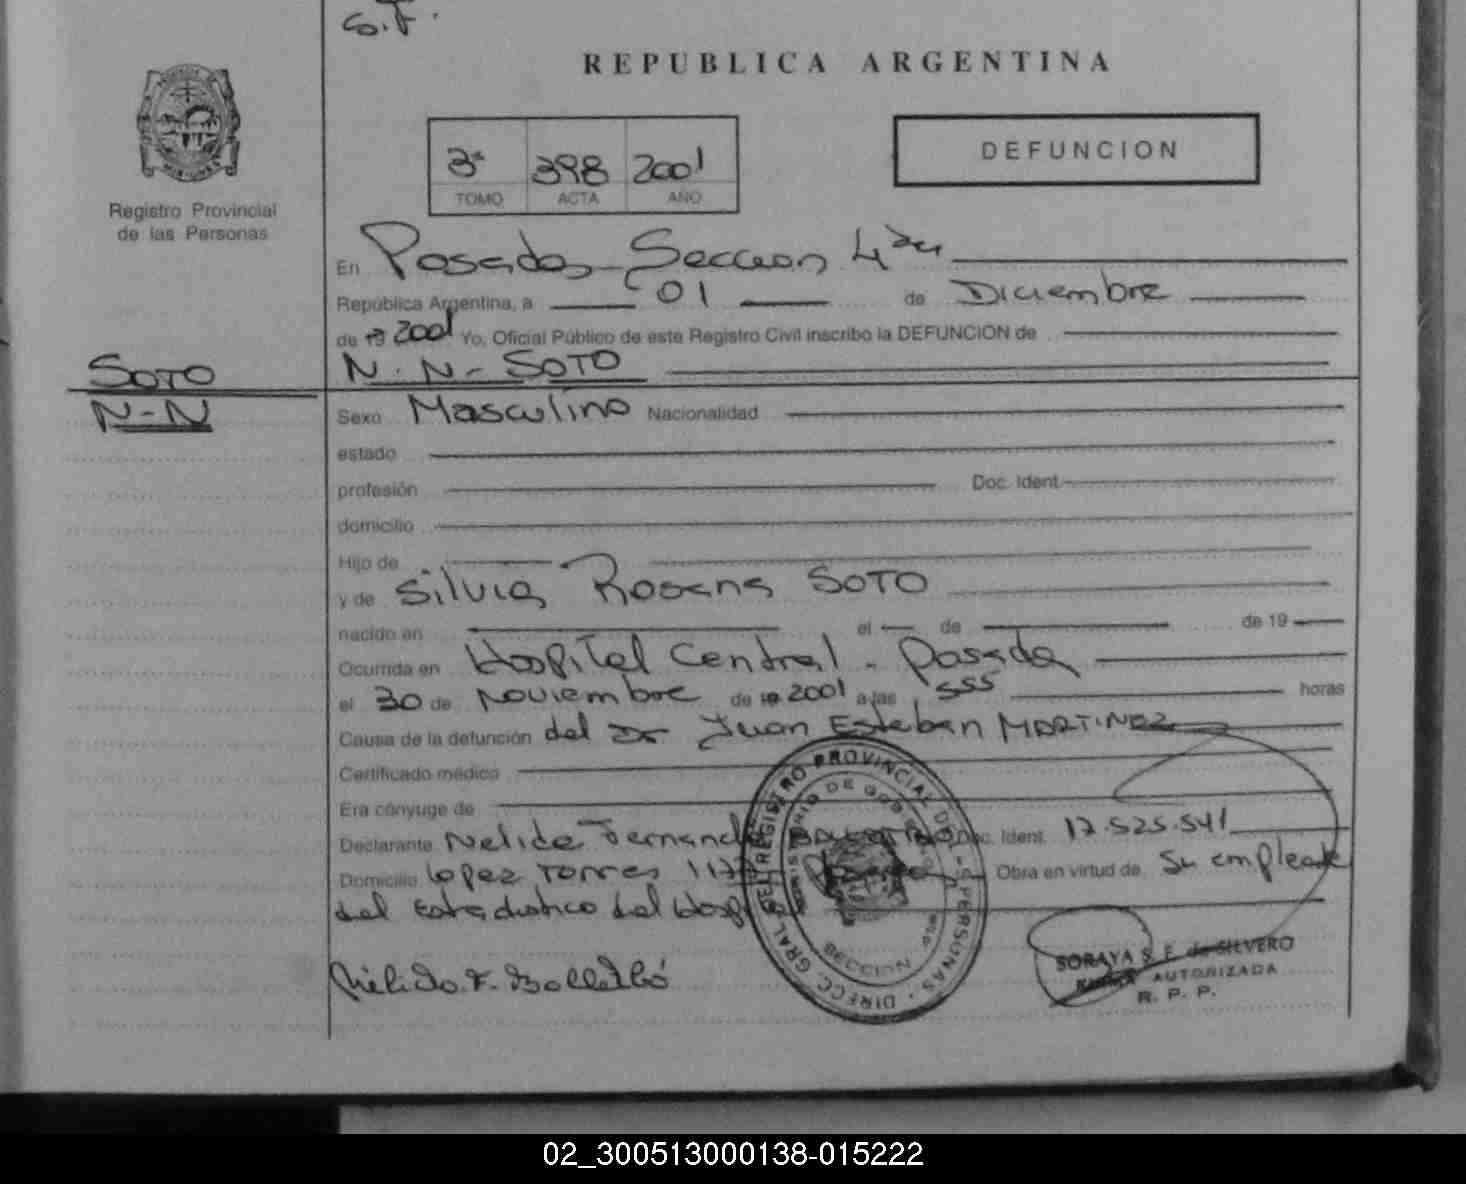 S.F.
REPUBLICA ARGENTINA
3º 398 2001
TOMO ACTA AÑO
DEFUNCION
Registro Provincial
de las Personas
En Posadas - Seccion 4ta
República Argentina, a 01 de Diciembre
de 19 2001 Yo, Oficial Público de este Registro Civil inscribo la DEFUNCION de
N. N - SOTO
SOTO
N-N
Sexo Masculino Nacionalidad
estado
profesión Doc. Ident.
domicilio
Hijo de
y de Silvia Rosana SOTO
nacido en el de de 19
Ocurrida en Hospital Central - Posadas
el 30 de Noviembre de 19 2001 a las 555 horas
Causa de la defunción del Dr Juan Esteban MARTINEZ
Certificado médico
Era cónyuge de
Declarante Nelida Fernanda Doc. Ident. 17.525.541
Domicilio Lopez Torres Obra en virtud de Su empleada
del Estadistico del Hosp
DIRECC. GRAL. DEL REGISTRO PROVINCIAL DE PERSONAS
SECCION
SORAYA S. F. de SILVERO
FIRMA AUTORIZADA
R. P. P.
02_300513000138-015222